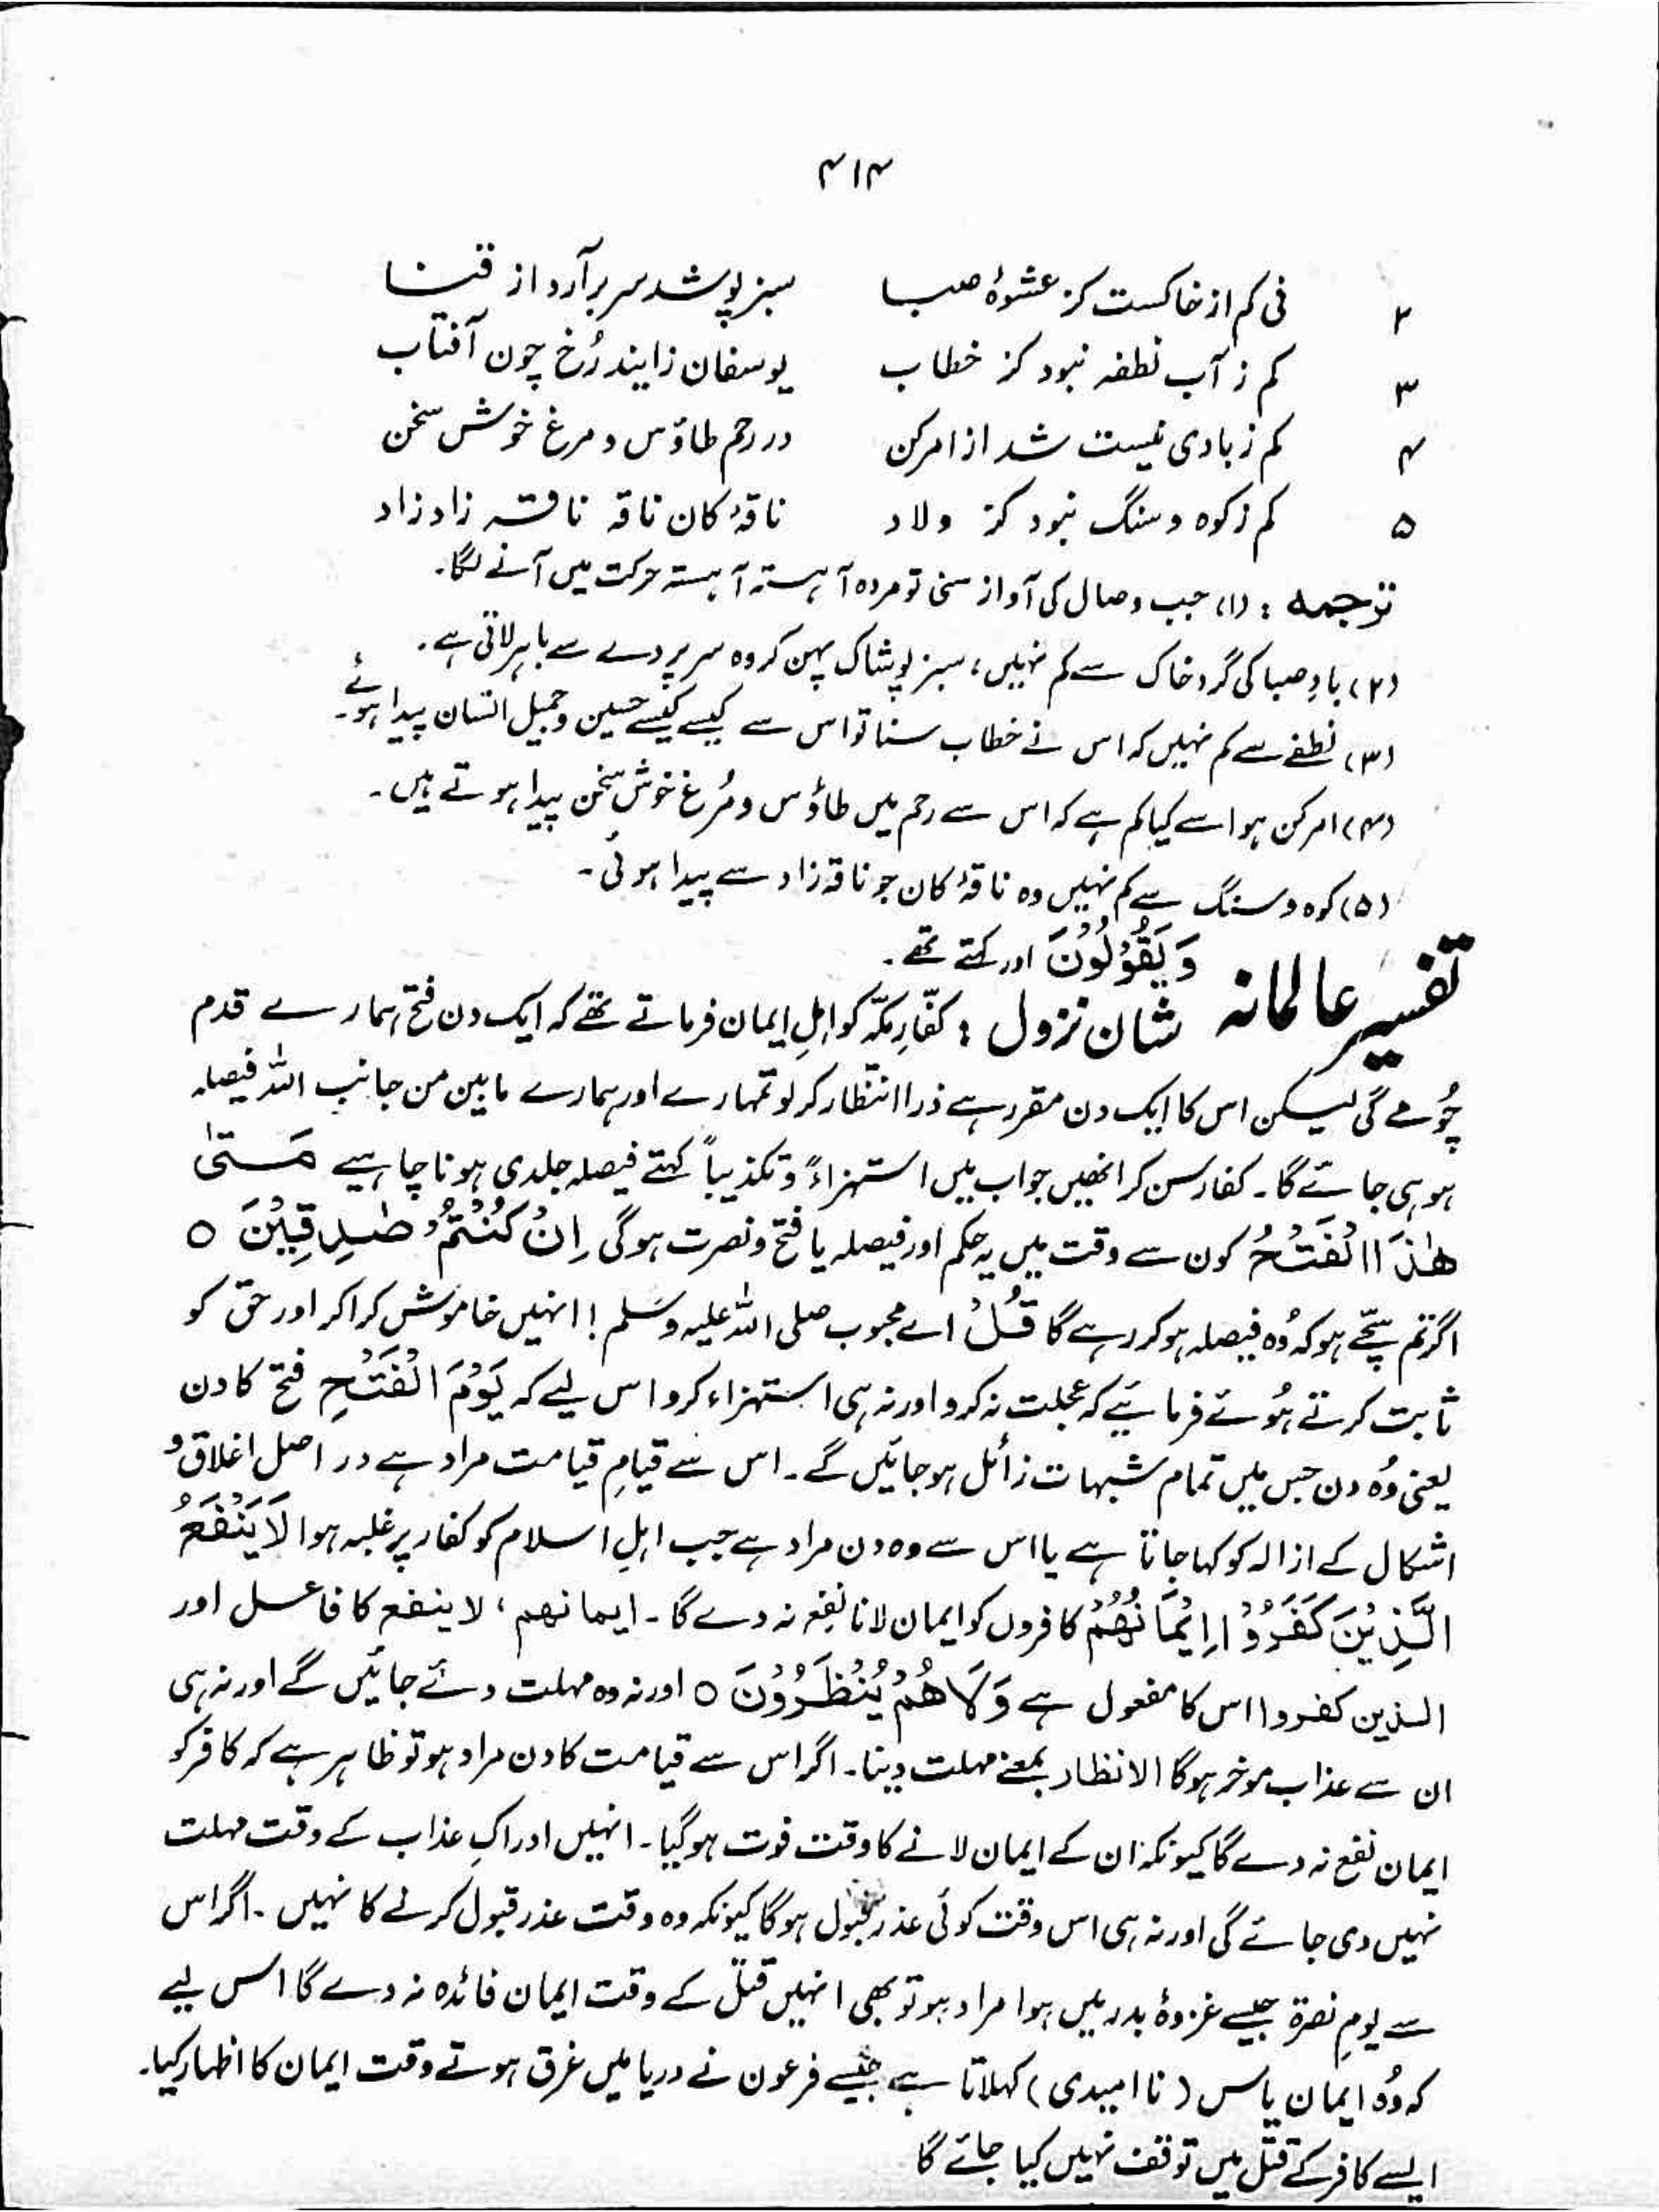 ۴۱۴
۲ نی کم از خاکست کز عشوۂ صبا سبز پوشد سر بر آرد از فنا
۳ کم ز آب نطفہ نبود کز خطاب یوسفان زایند رُخ چون آفتاب
۴ کم ز بادی نیست شد از امر کن در رحم طاؤس و مرغ خوش سخن
۵ کم ز کوہ و سنگ نبود کز ولاد ناقۂ کان ناقہ ناقہ زاد زاد
ترجمہ : (۱) جب وصال کی آواز سنی تو مردہ آہستہ آہستہ حرکت میں آنے لگا۔
(۲) بادِ صبا کی گرد خاک سے کم نہیں ، سبز پوشاک پہن کر وہ سر پردے سے باہر لاتی ہے۔
(۳) نطفے سے کم نہیں کہ اس نے خطاب سنا تو اس سے کیسے کیسے حسین و جمیل انسان پیدا ہوئے۔
(۴) امر کن ہوا سے کیا کم ہے کہ اس سے رحم میں طاؤس و مُرغ خوش سخن پیدا ہوتے ہیں۔
(۵) کوہ و سنگ سے کم نہیں وہ ناقۂ کان جو ناقہ زاد سے پیدا ہوئی۔
تفسیر عالمانہ وَ یَقُوْلُوْنَ اور کہتے تھے۔
شان نزول : کفّارِ مکّہ کو اہلِ ایمان فرماتے تھے کہ ایک دن فتح ہمارے قدم
چُومے گی لیکن اس کا ایک دن مقرر ہے ذرا انتظار کر لو تمہارے اور ہمارے مابین من جانب اللہ فیصلہ
ہو ہی جائے گا۔ کفار سن کر انھیں جواب میں استہزاءً و تکذیباً کہتے فیصلہ جلدی ہونا چاہیے مَتٰی
ھٰذَا الْفَتْحُ کون سے وقت میں یہ حکم اور فیصلہ یا فتح و نصرت ہوگی اِنْ کُنْتُمْ صٰدِقِیْنَ ○
اگر تم سچّے ہو کہ وُہ فیصلہ ہو کر رہے گا قُلْ اے محبوب صلی اللہ علیہ وسلم ! انہیں خاموش کرا کر اور حق کو
ثابت کرتے ہُوئے فرمائیے کہ عجلت نہ کرو اور نہ ہی استہزاء کرو اس لیے کہ یَوْمَ الْفَتْحِ فتح کا دن
یعنی وُہ دن جس میں تمام شبہات زائل ہو جائیں گے۔ اس سے قیامِ قیامت مراد ہے در اصل اغلاق و
اشکال کے ازالہ کو کہا جاتا ہے یا اس سے وہ دن مراد ہے جب اہلِ اسلام کو کفار پر غلبہ ہوا لَا یَنْفَعُ
الَّذِیْنَ کَفَرُوْا اِیْمَانُھُمْ کافروں کو ایمان لانا نفع نہ دے گا۔ ایمانھم ، لا ینفع کا فاعل اور
الذین کفروا اس کا مفعول ہے وَ لَا ھُمْ یُنْظَرُوْنَ ○ اور نہ وہ مہلت دئے جائیں گے اور نہ ہی
ان سے عذاب موخر ہوگا الانظار بمعنے مہلت دینا۔ اگر اس سے قیامت کا دن مراد ہو تو ظاہر ہے کہ کافر کو
ایمان نفع نہ دے گا کیونکہ ان کے ایمان لانے کا وقت فوت ہو گیا۔ انہیں ادراکِ عذاب کے وقت مہلت
نہیں دی جائے گی اور نہ ہی اس وقت کوئی عذر قبول ہوگا کیونکہ وہ وقت عذر قبول کرنے کا نہیں۔ اگر اس
سے یومِ نصرۃ جیسے غزوۂ بدر میں ہوا مراد ہو تو بھی انہیں قتل کے وقت ایمان فائدہ نہ دے گا اس لیے
کہ وُہ ایمان یاس (ناامیدی) کہلاتا ہے جیسے فرعون نے دریا میں غرق ہوتے وقت ایمان کا اظہار کیا۔
ایسے کافر کے قتل میں توقف نہیں کیا جائے گا